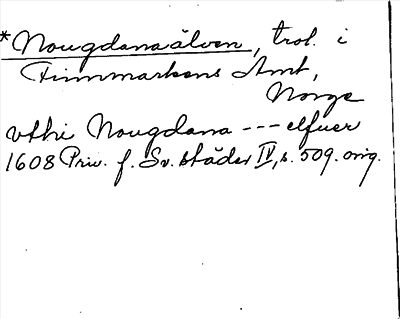 *Nougdanaälven, trol. i
Finnmarkens Amt,
Norge
vthi Nougdana --- elfuer
1608 Priv. f. Sv. städer IV, s. 509. orig.